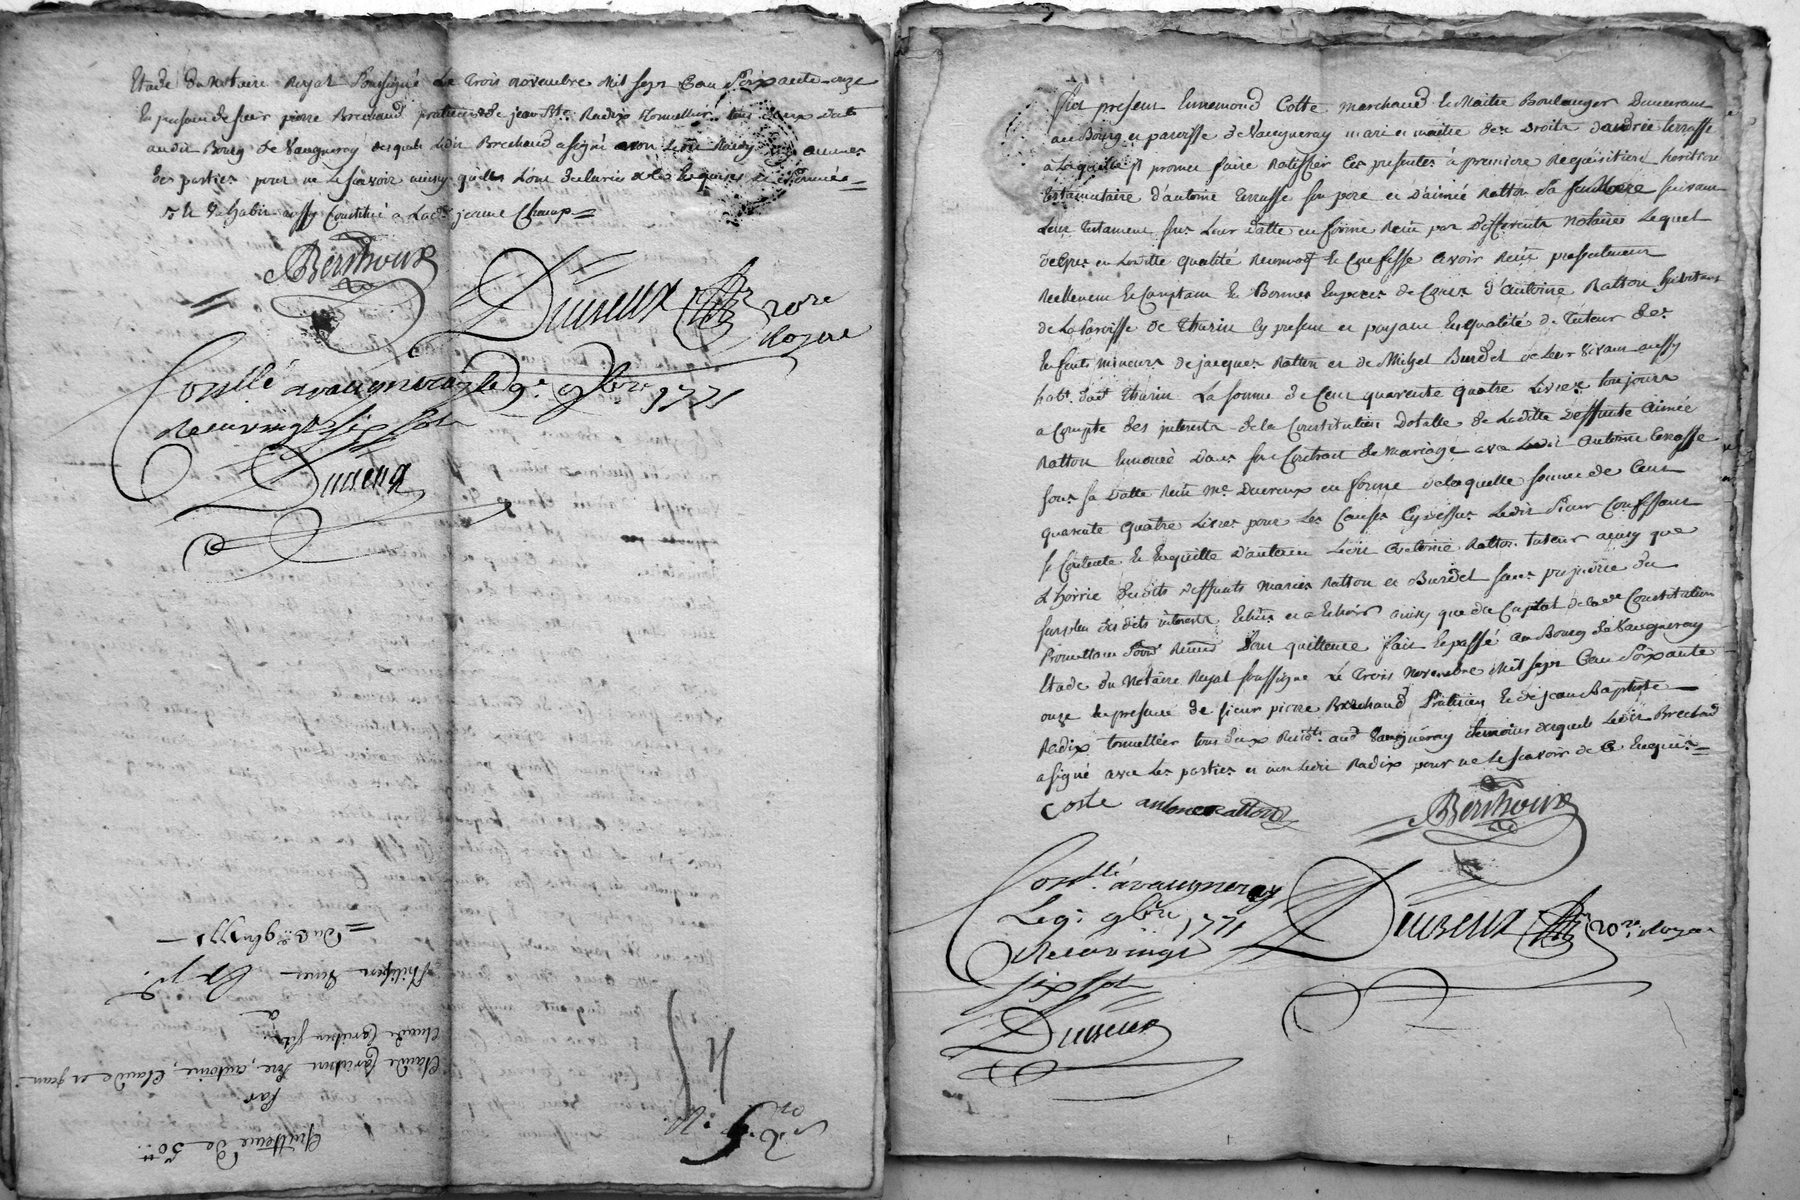 Etude du Notaire Royal soussigné Le Trois novembre Mil sept Cent soixante onze
En presence de sieur pierre Brechaud praticien et de jean Bte. Radix Tonnellier tous deux
audit Bourg de Vaugneray desquels Ledit Brechaud a signé non Ledit Radix
les parties pour ne le scavoir ainsy quelles l'ont declaré de ce Enquises et sommées
aussy Constitué a Lad. jeanne Champ
Berthoux
Duireux Nore
Royal
Conllé a vaugneray le 9e. 9bre 1771
Recu vingt six sols
Duireux
Quittence de 50tt
par
Claude pere, antoine, Claude et jean
Claude fils
a
Du 3e. 9bre 1771
fut present Ennemond Cotte marchand et Maitre Boulanger Demeurant
au Bourg et paroisse de Vaugneray mari et maitre des Droits d'andrée terrasse
a Laquelle il promet faire Ratiffier Ces presentes à premiere Requisition heritiere
testamentaire d'antoine terrasse son pere et d'aimée Ratton sa suivant
Leur testament sous Leur datte en forme Recu par Differents Notaires Lequel
de Gré en Laditte qualité Reconnoit et Confesse avoir Recu presentement
Reellement et Comptant En Bonnes Especes de Cours d'antoine Ratton habitant
de La paroisse de thurin Cy present et payant En qualité de tuteur des
Enfants mineurs de jacques Ratton et de Michel Burdel de Leur Vivant aussy
habt. dudt thurin La somme de Cent quarente quatre Livres toujours
a Compte des interets de la Constitution Dotalle de Laditte Deffunte aimée
Ratton Ennoncé Dans son Contrat de Mariage avec Ledit antoine terrasse
sous sa datte Recu Me. Duireux en forme de laquelle somme de Cent
quarente quatre Livres pour Les Causes Cy dessus Ledit sieur Confessant
se Contente et En quitte d'autant Ledit antoine Ratton tuteur ainsy que
L'hoirie desdits deffunts maries Ratton et Burdel sans prejudice du
surplus desdits interets Echus et a Echoir ainsy que du Capital de lade Constitution
Promettant Dont quittence fait et passé au Bourg de Vaugneray
Etude du Notaire Royal soussigné Le Trois Novembre Mil sept Cent soixante
onze En presence de sieur pierre Brechaud Praticien et de jean Baptiste
Radix tonnellier tous deux Residts. audt Vaugneray temoins desquels Ledit Brechaud
a signé avec Les parties et non Ledit Radix pour ne Le scavoir de Ce Enquis
Coste antoine ratton
Berthoux
Conllé. a vaugneray
Le 9e 9bre 1771
Recu vingt
six sols
Duireux
Duireux Nore. Royal